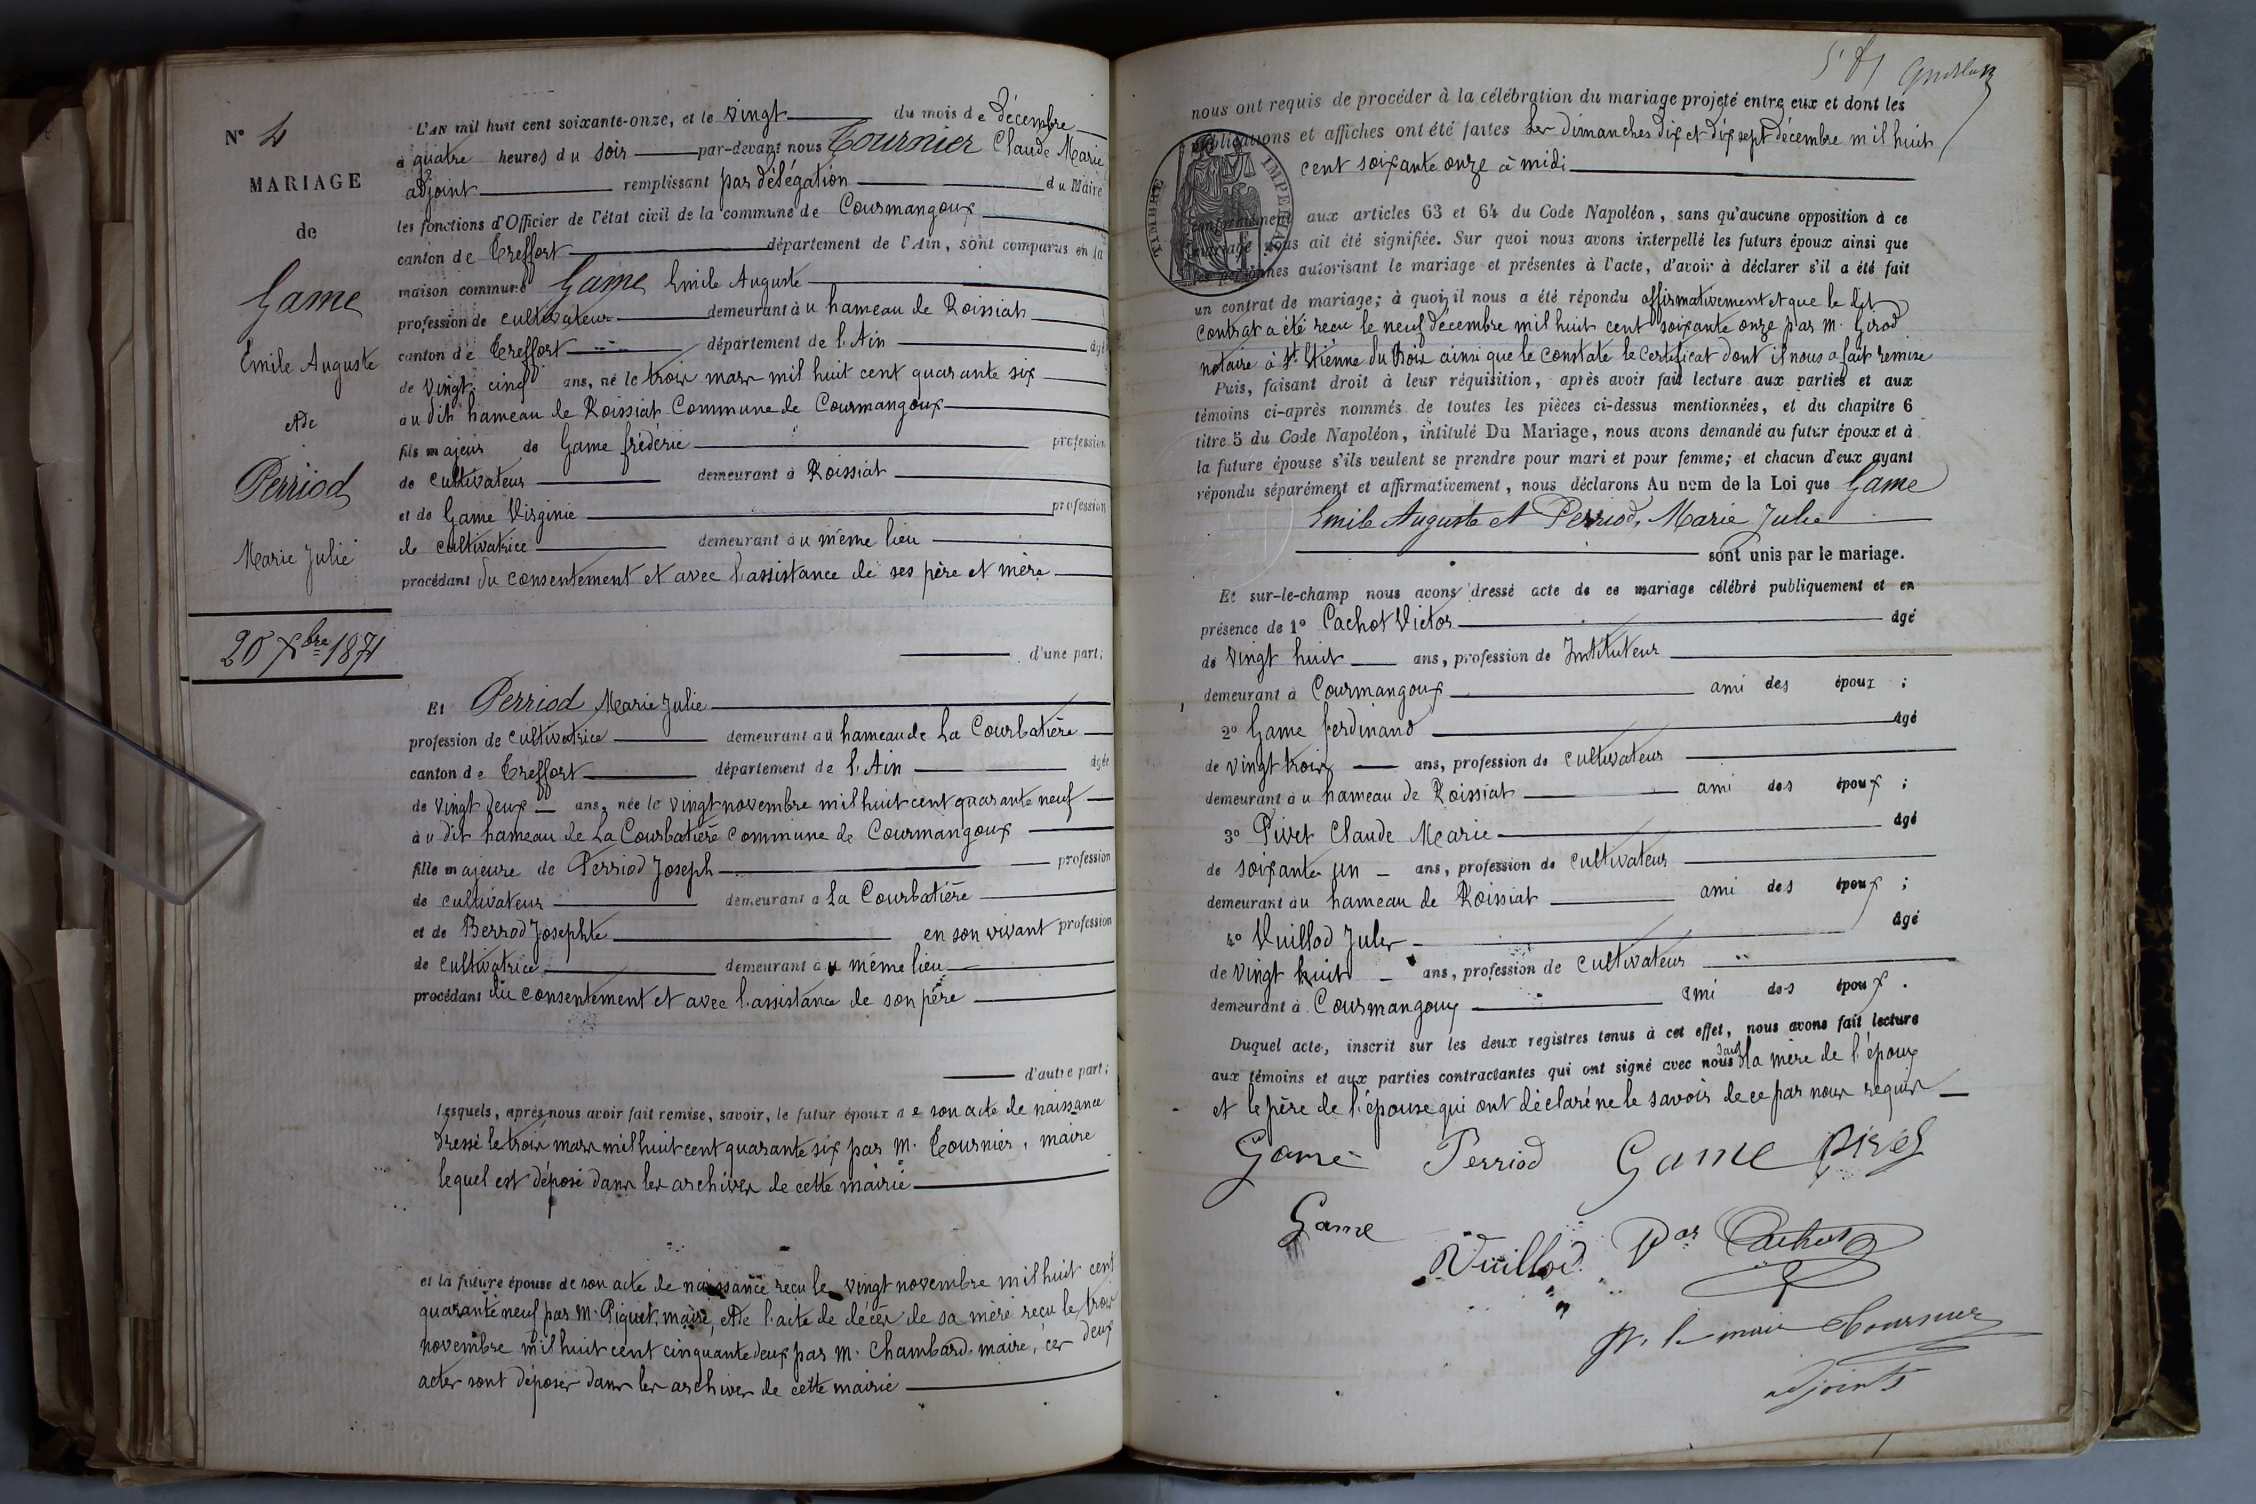 N° 4
MARIAGE
de
Game
Emile Auguste
et de
Perriod
Marie Julie
20 Xbre 1871
L'AN mil huit cent soixante-onze, et le vingt du mois de décembre
à quatre heures du soir par-devant nous Tournier Claude Marie
adjoint remplissant par délégation du Maire
les fonctions d'Officier de l'état civil de la commune de Courmangoux
canton de Treffort département de l'Ain, sont comparus en la
maison commune Game Emile Auguste
profession de cultivateur demeurant à u hameau de Roissiat
canton de Treffort département de l'Ain âgé
de vingt cinq ans, né le trois mars mil huit cent quarante six
au dit hameau de Roissiat Commune de Courmangoux
fils majeur de Game frédéric profession
de cultivateur demeurant à Roissiat
et de Game Virginie profession
de cultivatrice demeurant à u même lieu
procédant du consentement et avec l'assistance de ses père et mère
d'une part;
Et Perriod Marie Julie
profession de cultivatrice demeurant au hameau de La Courbatière
canton de Treffort département de l'Ain âgée
de vingt deux ans, née le vingt novembre mil huit cent quarante neuf
au dit hameau de La Courbatière commune de Courmangoux
fille majeure de Perriod Joseph profession
de cultivateur demeurant à La Courbatière
et de Berrod Josephte en son vivant profession
de cultivatrice demeurant à u même lieu
procédant du consentement et avec l'assistance de son père
d'autre part;
Lesquels, après nous avoir fait remise, savoir, le futur époux d e son acte de naissance
dressé le trois mars mil huit cent quarante six par M. Tournier, maire
lequel est déposé dans les archives de cette mairie
et la future épouse de son acte de naissance reçu le vingt novembre mil huit cent
quarante neuf par M. Piquet, maire, et de l'acte de décès de sa mère reçu le trois
novembre mil huit cent cinquante deux par M. Chambard, maire, ces deux
actes sont déposés dans les archives de cette mairie
nous ont requis de procéder à la célébration du mariage projeté entre eux et dont les
publications et affiches ont été faites les dimanches dix et dix sept décembre mil huit
cent soixante onze à midi
TIMBRE IMPERIAL
conformément aux articles 63 et 64 du Code Napoléon, sans qu'aucune opposition à ce
mariage nous ait été signifiée. Sur quoi nous avons interpellé les futurs époux ainsi que
les personnes autorisant le mariage et présentes à l'acte, d'avoir à déclarer s'il a été fait
un contrat de mariage; à quoi il nous a été répondu affirmativement et que le dit
Contrat a été reçu le neuf décembre mil huit cent soixante onze par M. Girod
notaire à St Etienne du Bois ainsi que le constate le certificat dont il nous a fait remise
Puis, faisant droit à leur réquisition, après avoir fait lecture aux parties et aux
témoins ci-après nommés de toutes les pièces ci-dessus mentionnées, et du chapitre 6
titre 5 du Code Napoléon, intitulé Du Mariage, nous avons demandé au futur époux et à
la future épouse s'ils veulent se prendre pour mari et pour femme; et chacun d'eux ayant
répondu séparément et affirmativement, nous déclarons Au nom de la Loi que Game
Emile Auguste et Perriod, Marie Julie
sont unis par le mariage.
Et sur-le-champ nous avons dressé acte de ce mariage célébré publiquement et en
présence de 1° Cachot Victor âgé
de vingt huit ans, profession de Instituteur
demeurant à Courmangoux ami des époux ;
2° Game ferdinand âgé
de vingt trois ans, profession de cultivateur
demeurant à u hameau de Roissiat ami des époux ;
3° Pivet Claude Marie âgé
de soixante un ans, profession de cultivateur
demeurant au hameau de Roissiat ami des époux ;
4° Vuillod Jules âgé
de vingt huit ans, profession de cultivateur
demeurant à Courmangoux ami des époux .
Duquel acte, inscrit sur les deux registres tenus à cet effet, nous avons fait lecture
aux témoins et aux parties contractantes qui ont signé avec nous sauf la mère de l'époux
et le père de l'épouse qui ont déclaré ne le savoir de ce par nous requis
Game Perriod Game Pivet
Game Vuillod Vor Cachot
Pr le maire Tournier
adjoint